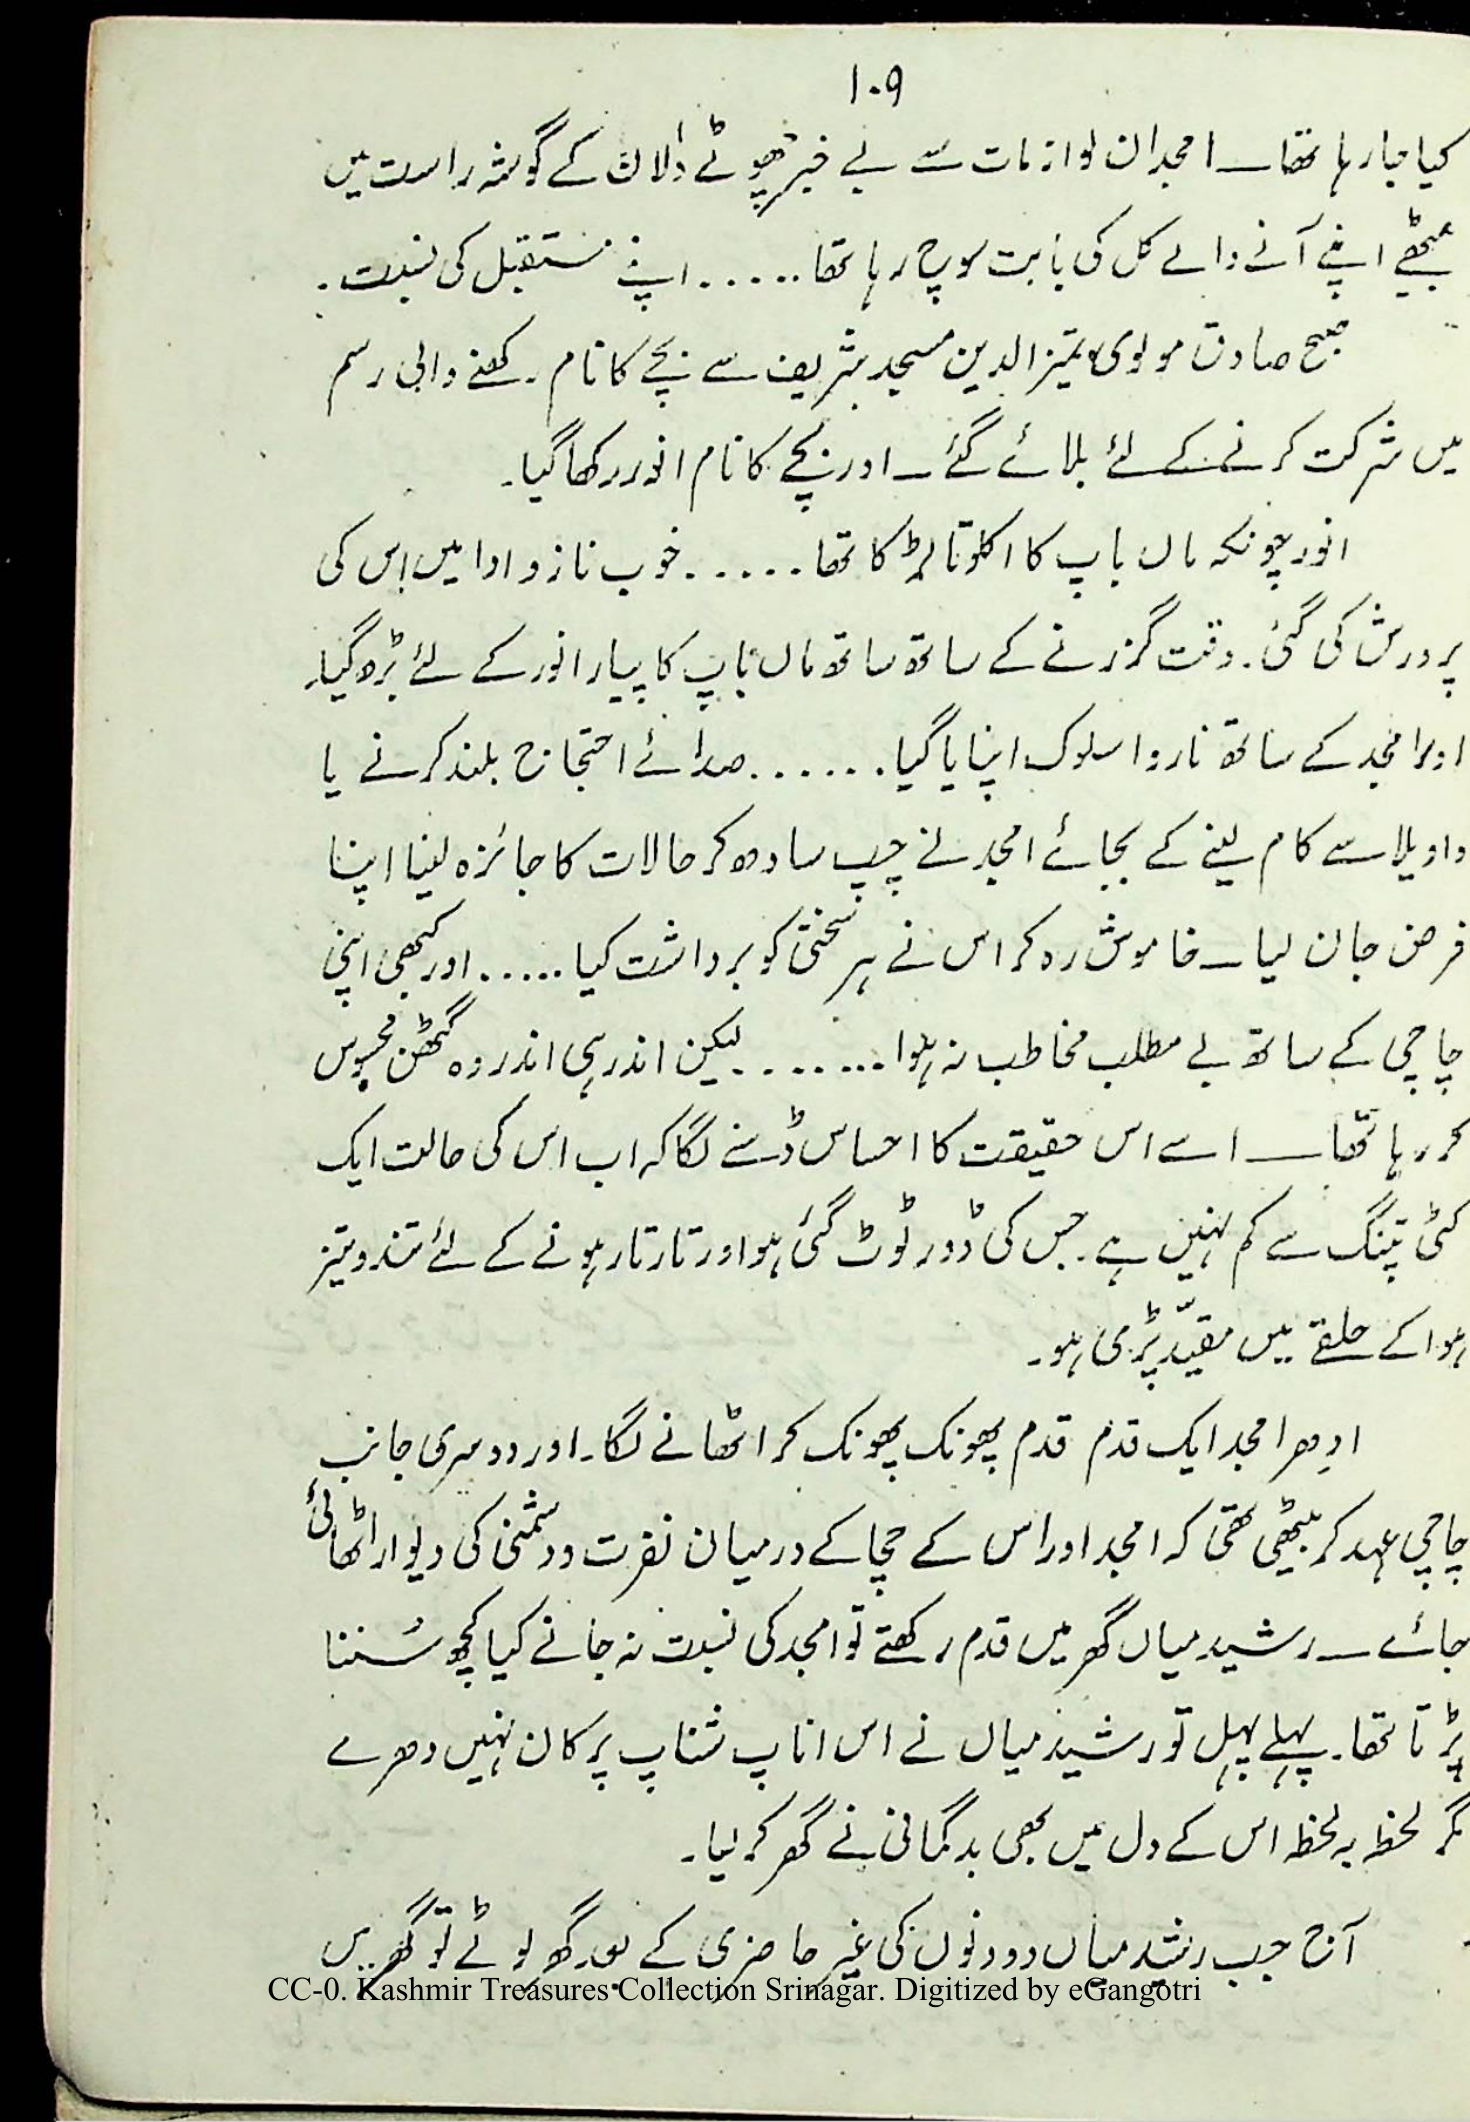 ۱۰۹
کیا جا رہا تھا ــ امجد ان لوازمات سے بے خبر چھوٹے دالان کے گوشہ راست میں
بیٹھے اپنے آنے والے کل کی بابت سوچ رہا تھا ...... اپنے مستقبل کی نسبت ۔
صبح صادق مولوی تمیز الدین مسجد شریف سے بچے کا نام رکھنے والی رسم
میں شرکت کرنے کے لئے بلائے گئے ــ اور بچے کا نام انور رکھا گیا۔
انور چونکہ ماں باپ کا اکلوتا لڑکا تھا ...... خوب ناز و ادا میں اس کی
پرورش کی گئی۔ وقت گزرنے کے ساتھ ساتھ ماں باپ کا پیار انور کے لئے بڑھ گیا۔
اور امجد کے ساتھ ناروا سلوک اپنایا گیا ....... صدائے احتجاج بلند کرنے یا
واویلا سے کام لینے کے بجائے امجد نے چپ سادھ کر حالات کا جائزہ لینا اپنا
فرض جان لیا ــ خاموش رہ کر اس نے ہر سختی کو برداشت کیا ..... اور کبھی اپنی
چاچی کے ساتھ بے مطلب مخاطب نہ ہوا ........ لیکن اندر ہی اندر وہ گھٹن محسوس
کر رہا تھا ــ اسے اس حقیقت کا احساس ڈسنے لگا کہ اب اس کی حالت ایک
کٹی پتنگ سے کم نہیں ہے۔ جس کی ڈور ٹوٹ گئی ہو اور تار تار ہونے کے لئے تند و تیز
ہوا کے حلقے میں مقیّد پڑی ہو۔
ادھر امجد ایک قدم قدم پھونک پھونک کر اٹھانے لگا۔ اور دوسری جانب
چاچی عہد کر بیٹھی تھی کہ امجد اور اس کے چچا کے درمیان نفرت و دشمنی کی دیوار اٹھائی
جائے ــ رشید میاں گھر میں قدم رکھتے تو امجد کی نسبت نہ جانے کیا کچھ سُننا
پڑتا تھا۔ پہلے پہل تو رشید میاں نے اس اناپ شناپ پر کان نہیں دھرے
مگر لحظہ بہ لحظہ اس کے دل میں بھی بدگمانی نے گھر کر لیا۔
آج جب رشید میاں دو دنوں کی غیر حاضری کے بعد گھر لوٹے تو گھر میں
CC-0. Kashmir Treasures Collection Srinagar. Digitized by eGangotri